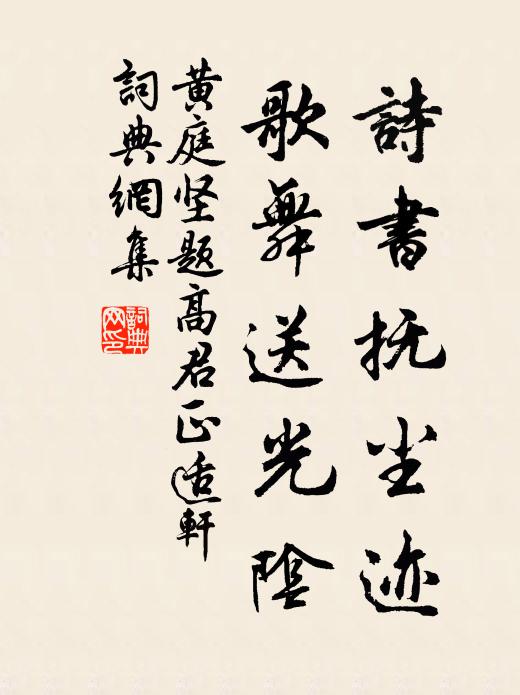 詩書抚尘迹
歌舞送光陰
黄庭坚题高君正适軒
詞典網集
詞典网印